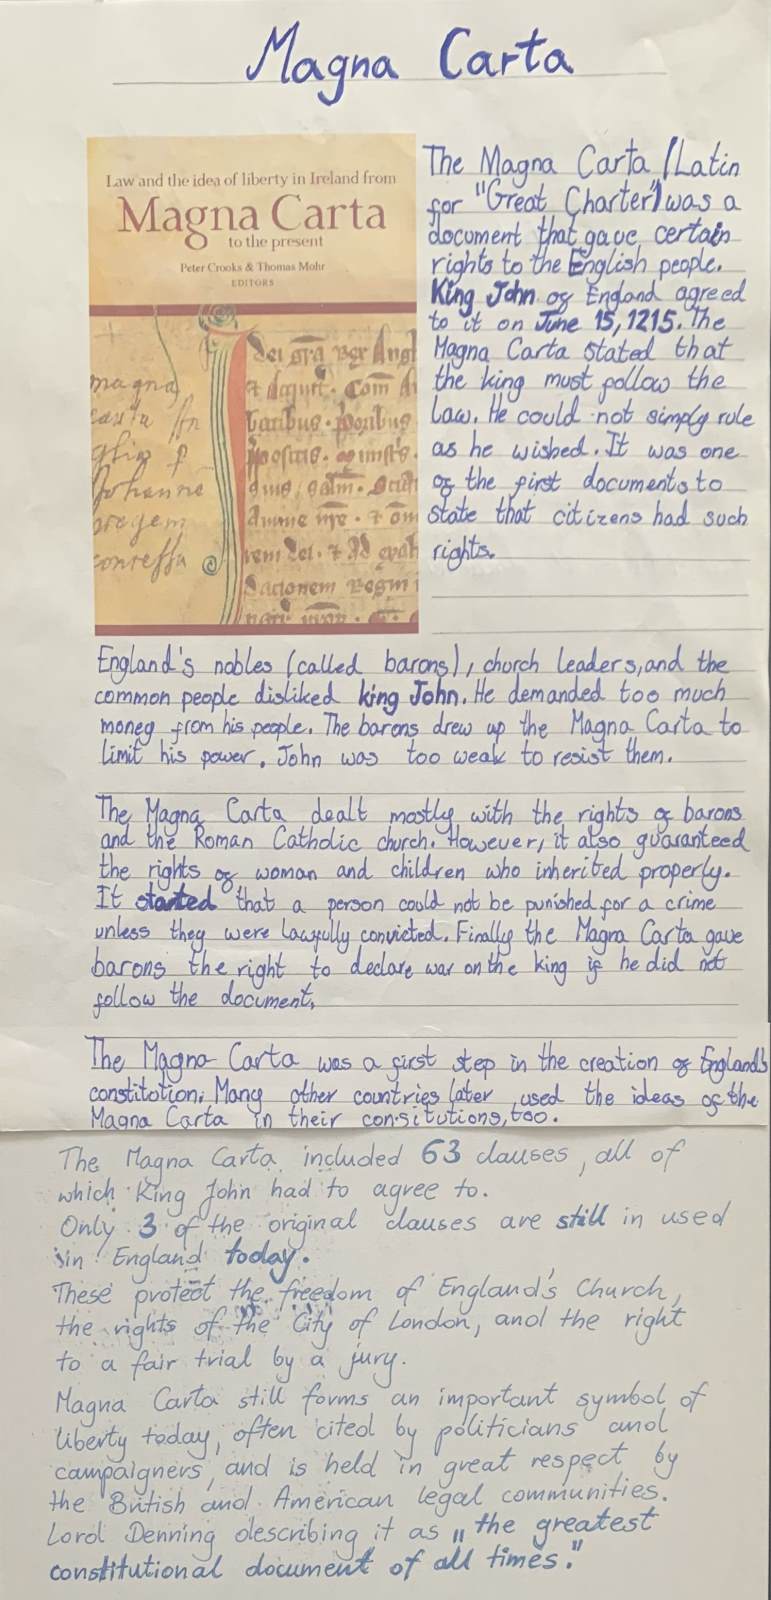 Magna Carta
Law and the idea of liberty in Ireland from
Magna Carta
to the present
Peter Crooks & Thomas Mohr
EDITORS
magna
carta
Johanne
regem
concessa
The Magna Carta (Latin
for "Great Charter") was a
document that gave certain
rights to the English people.
King John of England agreed
to it on June 15, 1215. The
Magna Carta stated that
the king must follow the
law. He could not simply rule
as he wished. It was one
of the first documents to
state that citizens had such
rights.
England's nobles (called barons), church leaders, and the
common people disliked king John. He demanded too much
money from his people. The barons drew up the Magna Carta to
limit his power. John was too weak to resist them.
The Magna Carta dealt mostly with the rights of barons
and the Roman Catholic church. However, it also guaranteed
the rights of woman and children who inherited properly.
It started that a person could not be punished for a crime
unless they were lawfully convicted. Finally the Magna Carta gave
barons the right to declare war on the king if he did not
follow the document.
The Magna Carta was a first step in the creation of England's
constitution. Many other countries later used the ideas of the
Magna Carta in their consitutions, too.
The Magna Carta included 63 clauses, all of
which King John had to agree to.
Only 3 of the original clauses are still in used
in England today.
These protect the freedom of England's Church,
the rights of the City of London, and the right
to a fair trial by a jury.
Magna Carta still forms an important symbol of
liberty today, often cited by politicians and
campaigners, and is held in great respect by
the British and American legal communities.
Lord Denning describing it as „the greatest
constitutional document of all times."